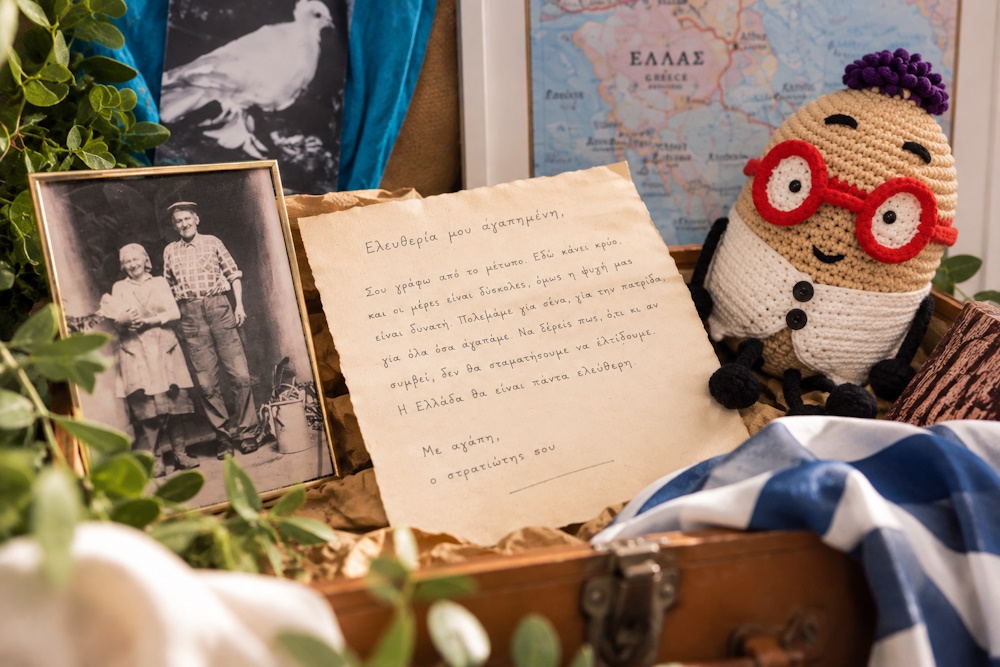 ΕΛΛΑΣ
GREECE
Ελευθερία μου άγαπημένη,
Σου γράφω από το μέτωπο. Εδώ κάνει κρύο.
και οι μέρες είναι δύσκολες, όμως η ψυχή μας
είναι δυνατή. Πολεμάμε γία σένα, για την πατρίδα,
γία όλα όσα άγαπάμε. Να ξέρεις πως, ότι κι αν
συμβεί, δεν θα σταματήσουμε να ελπίδουμε.
Η Ελλάδα θα είναι πάντα ελεύθερη.
Με αγάπη,
ο στρατιώτης σου